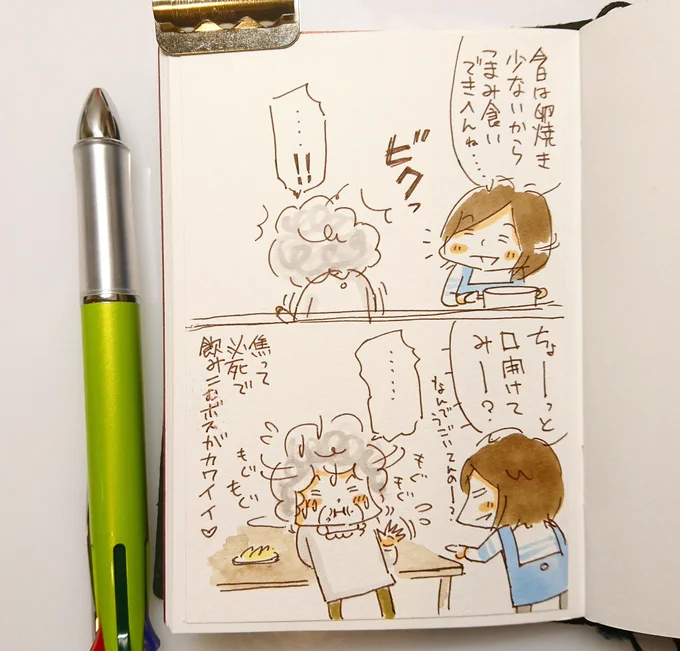 今日は卵焼き
少ないから
つまみ食い
できへんね……
ビクっ
……!!
ちょーーっと
口開けて
みー?
なんでうごいてんのー?
……
もぐもぐ
もぐもぐ
焦って
必死で
飲みこむボスがカワイイ♡